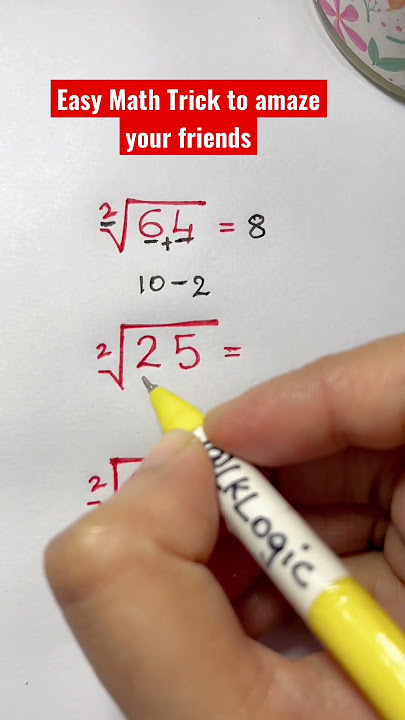 Easy Math Trick to amaze
your friends
²√64 = 8
+
10-2
²√25 =
2√